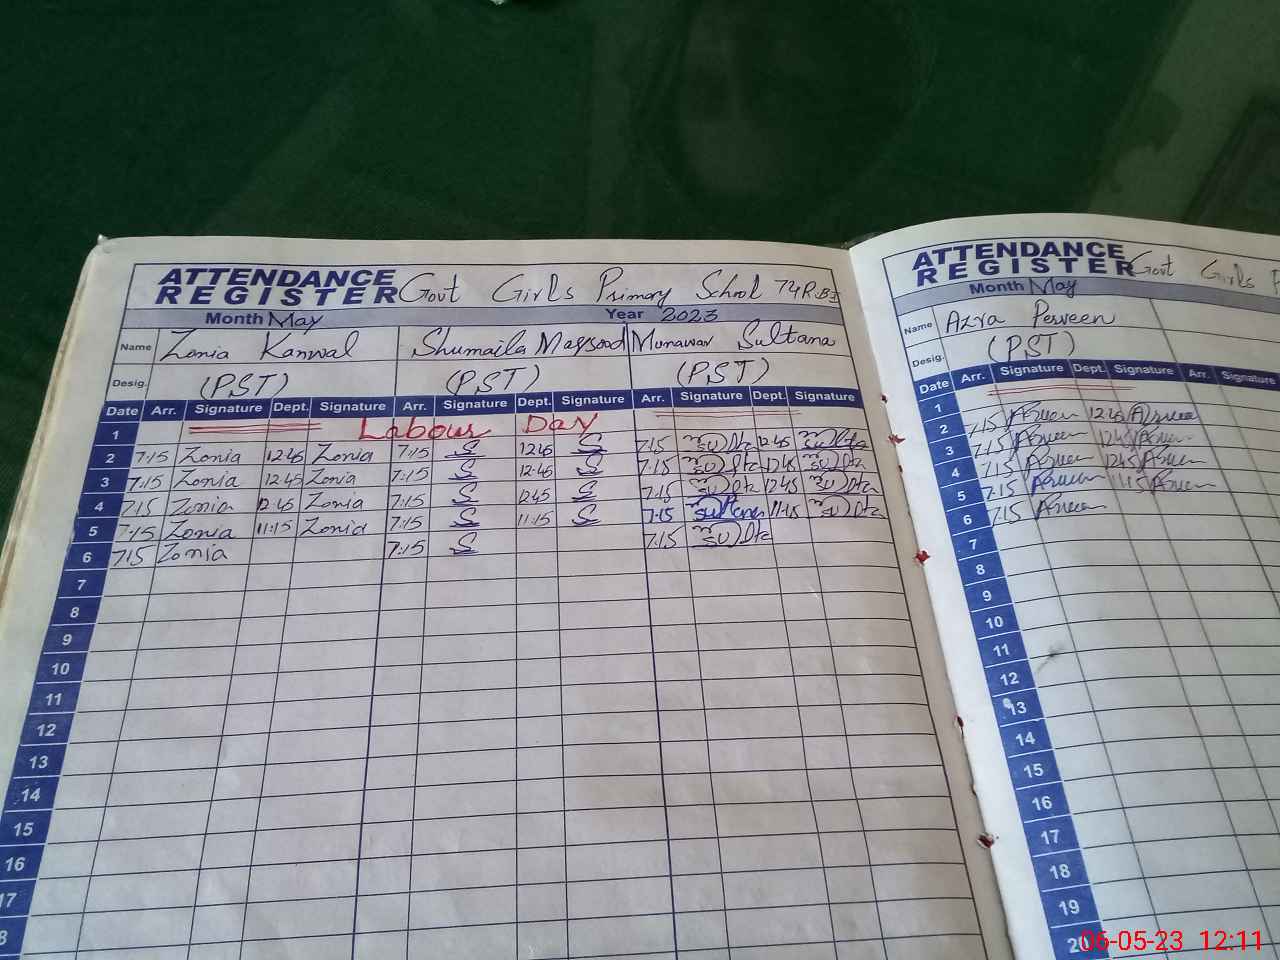 ATTENDANCE REGISTER Govt Girls Primary School 74R.B I
Month May Year 2023
Name Zonia Kanwal Shumaila Maqsood Munawar Sultana
Desig. (PST) (PST) (PST)
Date Arr. Signature Dept. Signature Arr. Signature Dept. Signature Arr. Signature Dept. Signature
1 Labour Day
2 7:15 Zonia 12:45 Zonia 7:15 S 12:45 S 7:15 12:45
3 7:15 Zonia 12:45 Zonia 7:15 S 12:45 S 7:15 12:45
4 7:15 Zonia 12:45 Zonia 7:15 S 12:45 S 7:15 12:45
5 7:15 Zonia 11:15 Zonia 7:15 S 11:15 S 7:15 11:15
6 7:15 Zonia 7:15 S 7:15
7
8
9
10
11
12
13
14
15
16
17
8
ATTENDANCE REGISTER Govt Girls P
Month May
Name Azra Perveen
Desig. (PST)
Date Arr. Signature Dept. Signature Arr. Signature
1
2 7:15 12:45
3 7:15 12:45
4 7:15 12:45
5 7:15 11:15
6 7:15
7
8
9
10
11
12
13
14
15
16
17
18
19
20
06-05-23 12:11